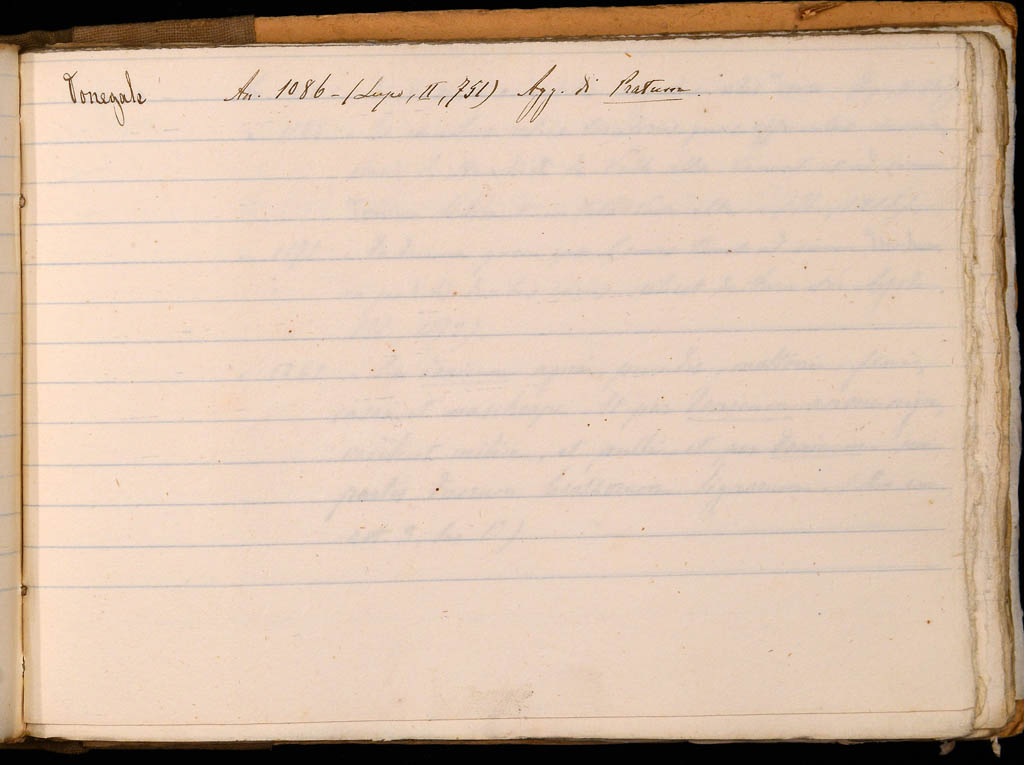 Tonegale An. 1086 - (Lupo, II, 751) Agg. di Pratum.